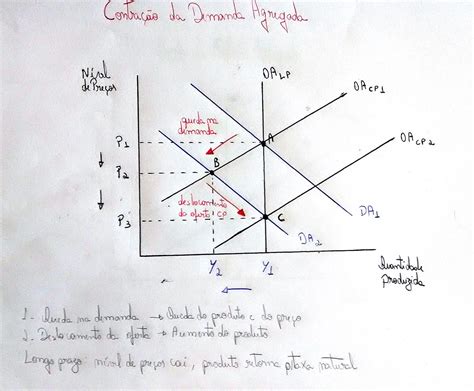 Contração da Demanda Agregada
Nível
de Preços
OA LP
OA CP1
OA CP2
queda na
demanda
P1
A
B
P2
deslocamento
da oferta CP
P3
C
DA1
DA2
Y2
Y1
Quantidade
Produzida
1- Queda na demanda → Queda do produto e do preço
2- Deslocamento da oferta → Aumento do produto
Longo prazo: nível de preços cai, produto retorna p/ taxa natural